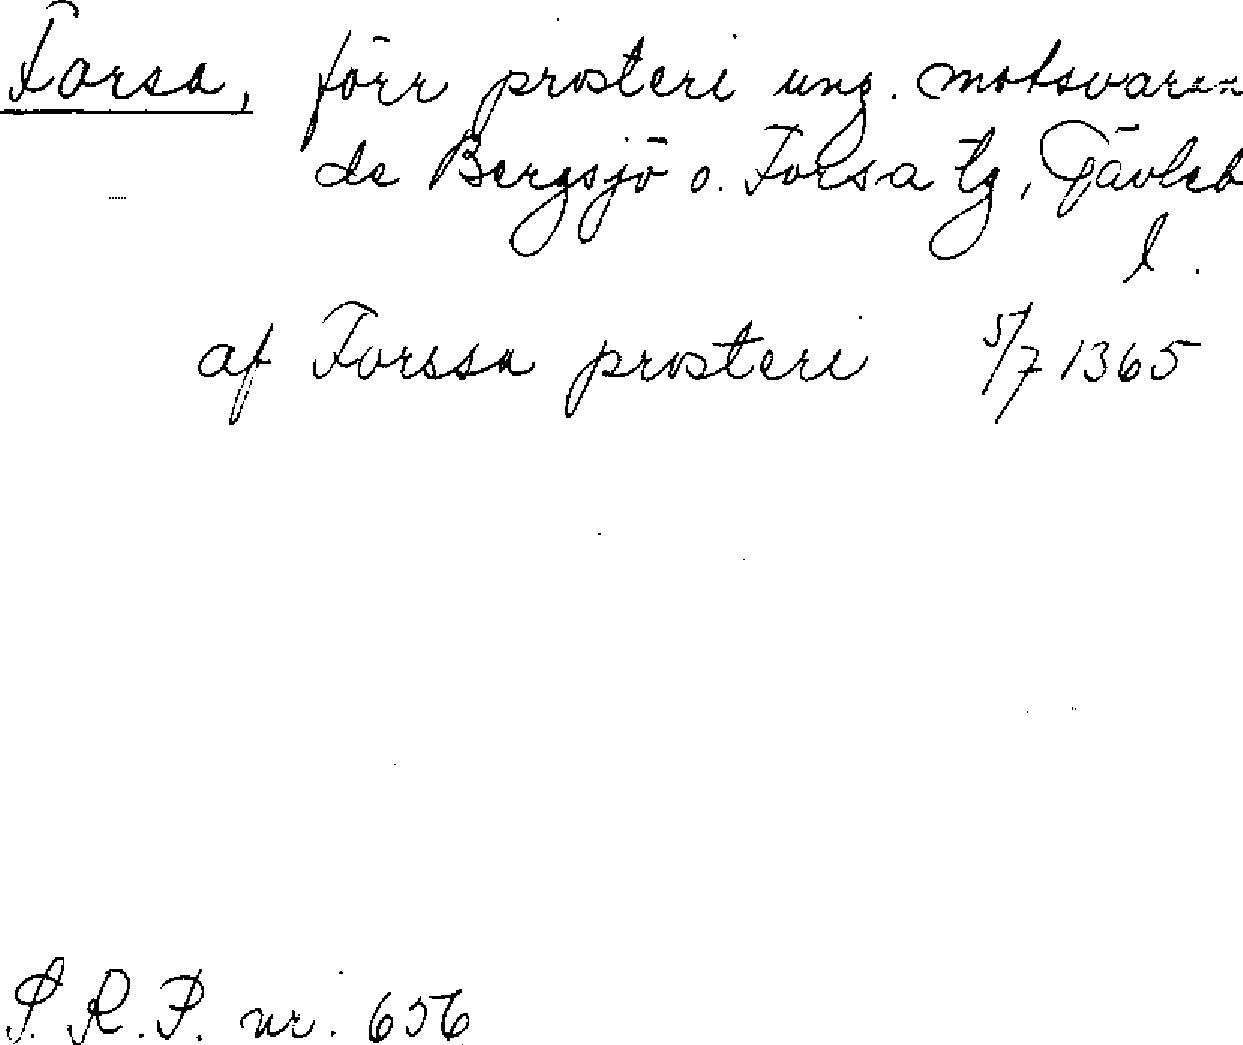 Forsa, förr prosteri ung. motsvaran-
de Bergsjö o. Forsa tg, Gävleb
l.
af Forssa prosteri 5/7 1365
S.R.P. nr. 656